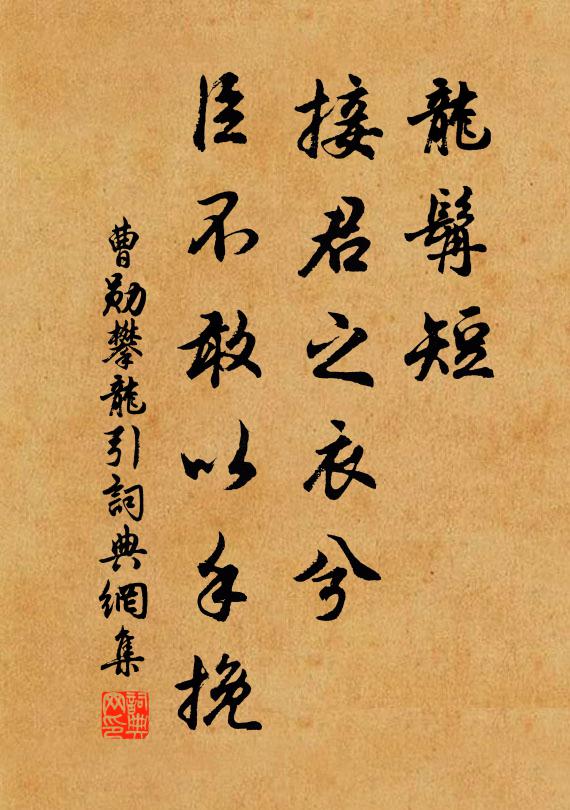 龍髯短
接君之衣兮
臣不敢以手挽
曹勛攀龍引詞典網集
詞典网印